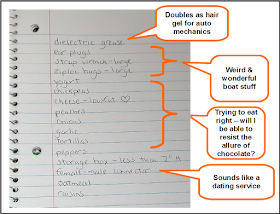 dielectric grease
ear plugs
strap wrench - large
ziploc bags - large
yogurt
chickpeas
cheese - ♡
peaches
onions
garlic
tortillas
peppers
storage box - less than 7" H
female - male connector
oatmeal
raisins
Doubles as hair
gel for auto
mechanics
Weird &
wonderful
boat stuff
Trying to eat
right – will I
be able to
resist the
allure of
chocolate?
Sounds like a
dating service